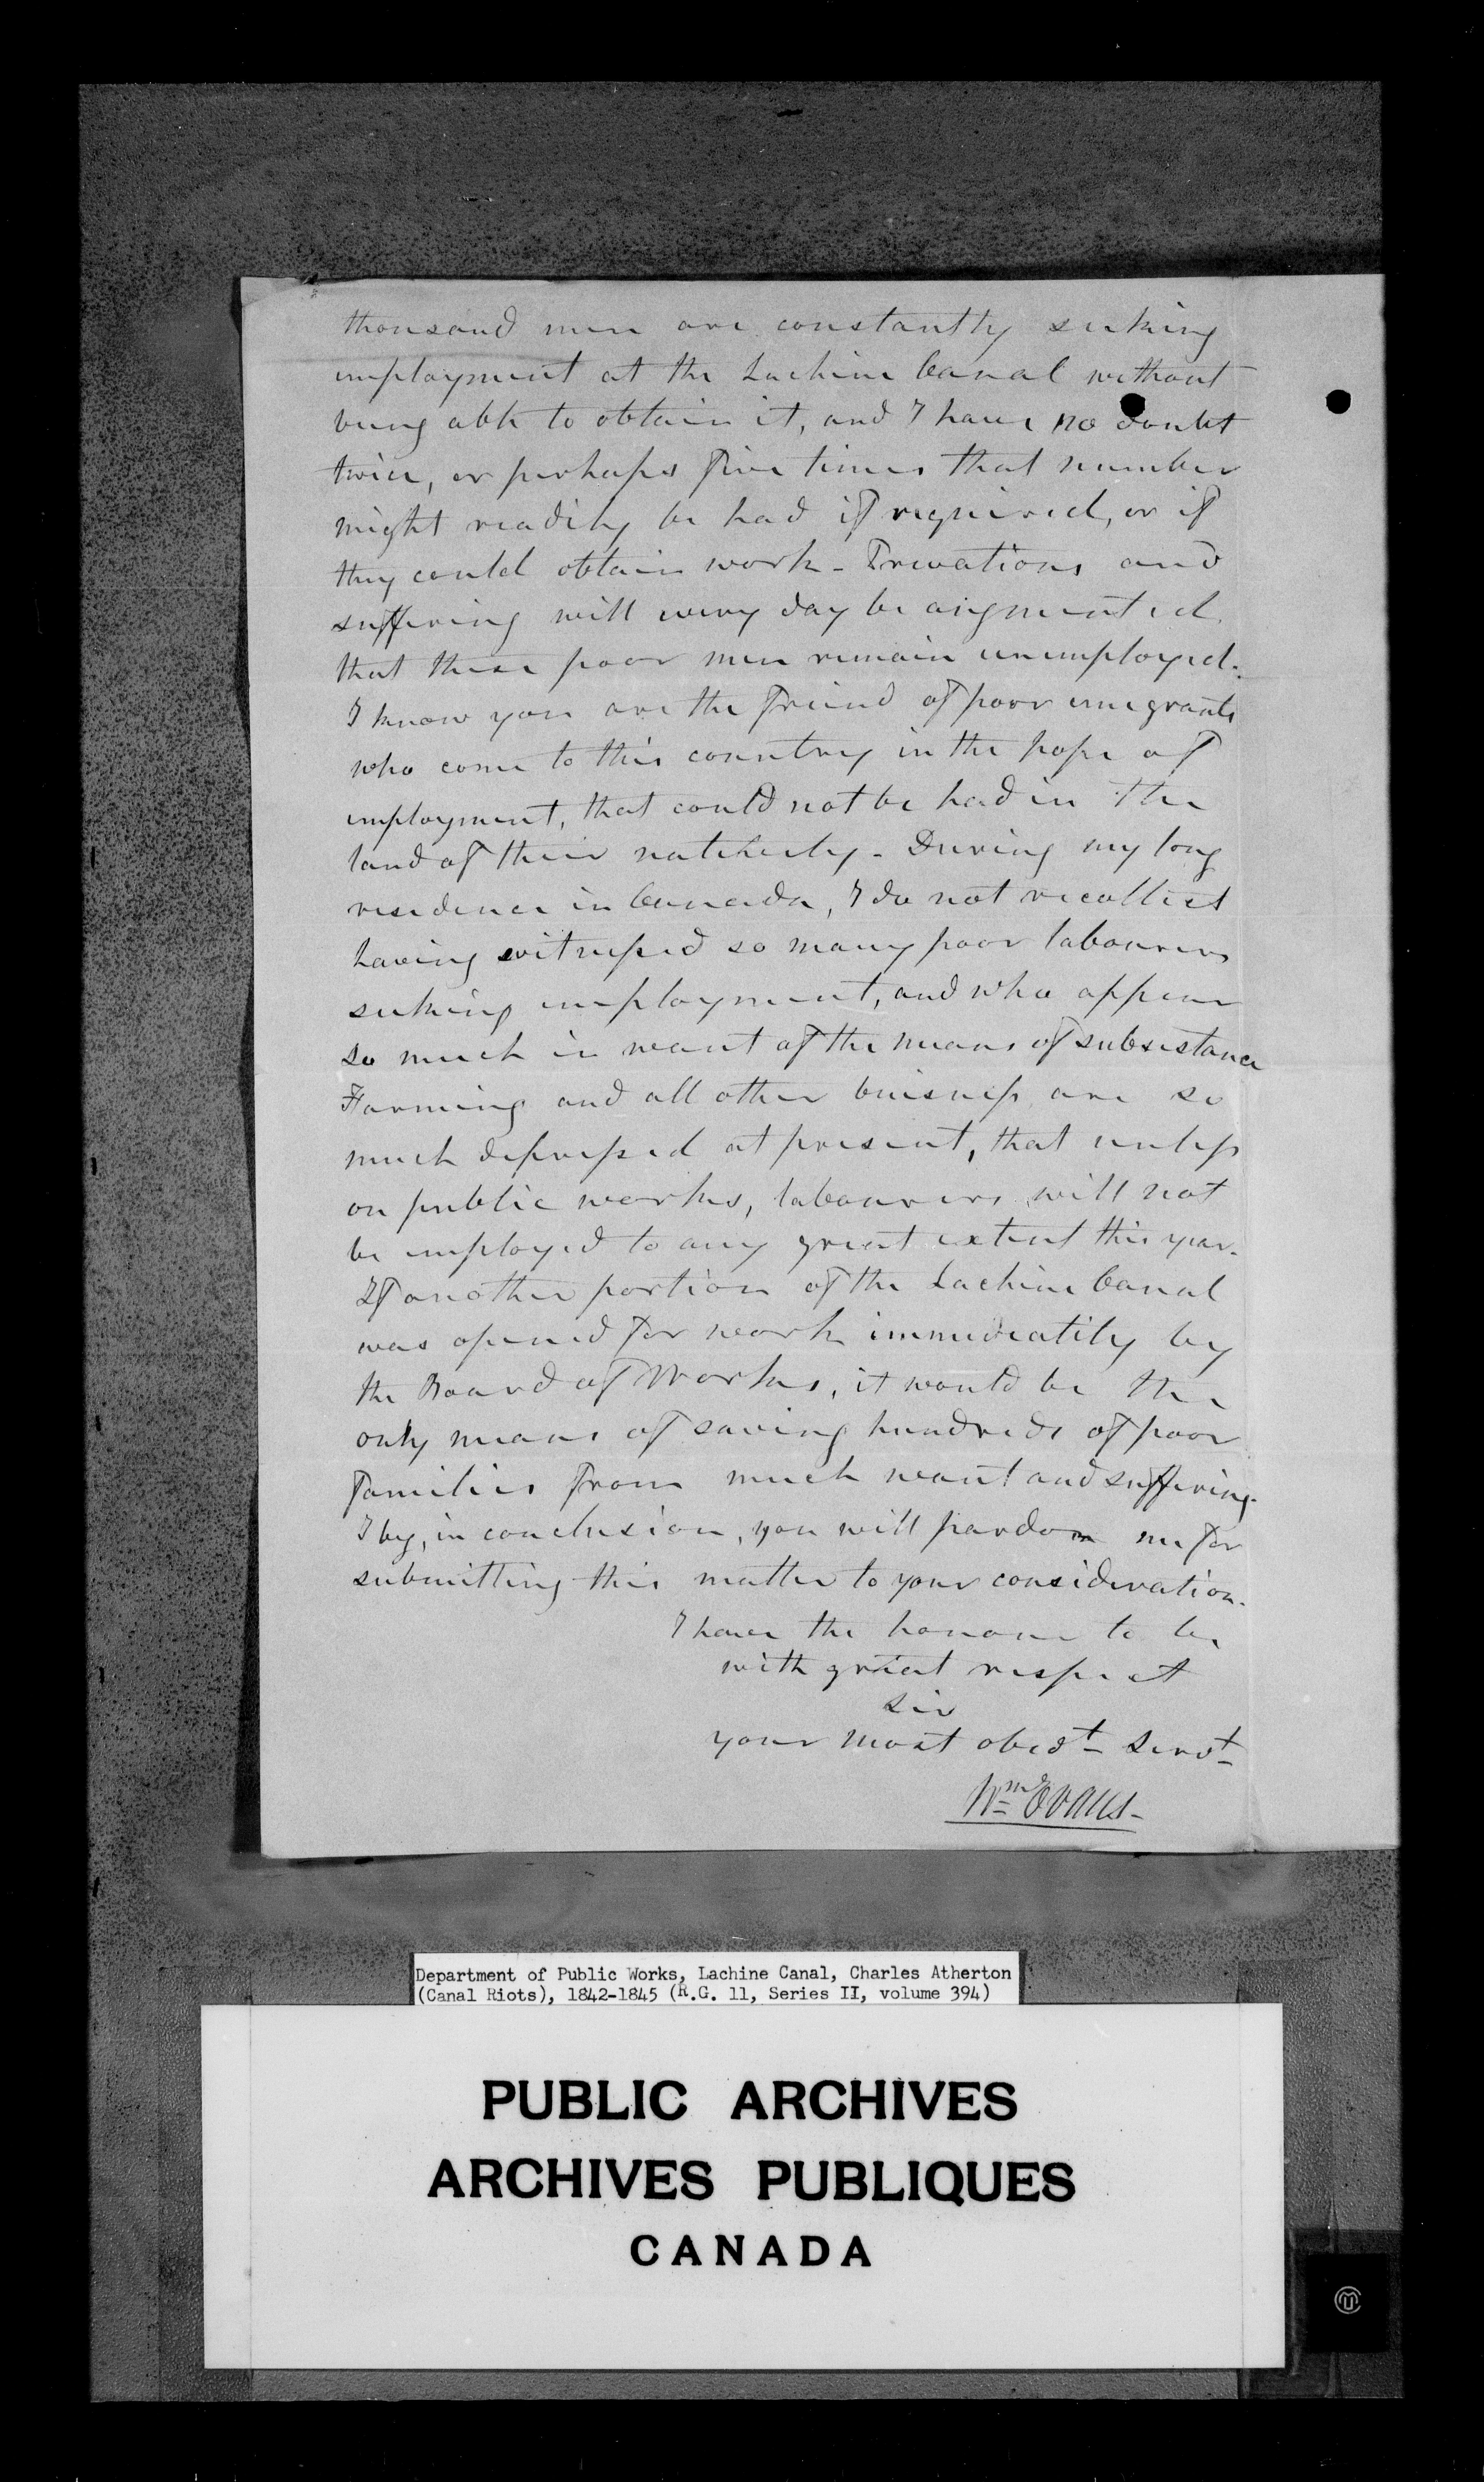 thousand men are constantly seeking
employment at the Lachine Canal without
being able to obtain it, and I have no doubt
twice, or perhaps five times that number
might readily be had if required, or if
they could obtain work - Privations and
suffering will every day be augmented
that these poor men remain unemployed.
I know you are the friend of poor emigrants
who come to this country in the hope of
employment, that could not be had in the
land of their - During my long
residence in Canada, I do not recollect
having witnessed so many poor labourers
seeking employment, and who appear
so much in want of the means of subsistance
Farming and all other buisness are so
much depressed at present, that unless
on public works, labourers will not
be employed to any great extent this year.
If another portion of the Lachine Canal
was opened for work immediately by
the Board of Works, it would be the
only means of saving hundreds of poor
families from much want and suffering.
I beg, in conclusion, you will pardon me for
submitting this matter to your consideration.
I have the honour to be
with great respect
Sir
your most obedt Servt
Wm Evans -
Department of Public Works, Lachine Canal, Charles Atherton
(Canal Riots), 1842-1845 (R.G. 11, Series II, volume 394)
PUBLIC ARCHIVES
ARCHIVES PUBLIQUES
CANADA